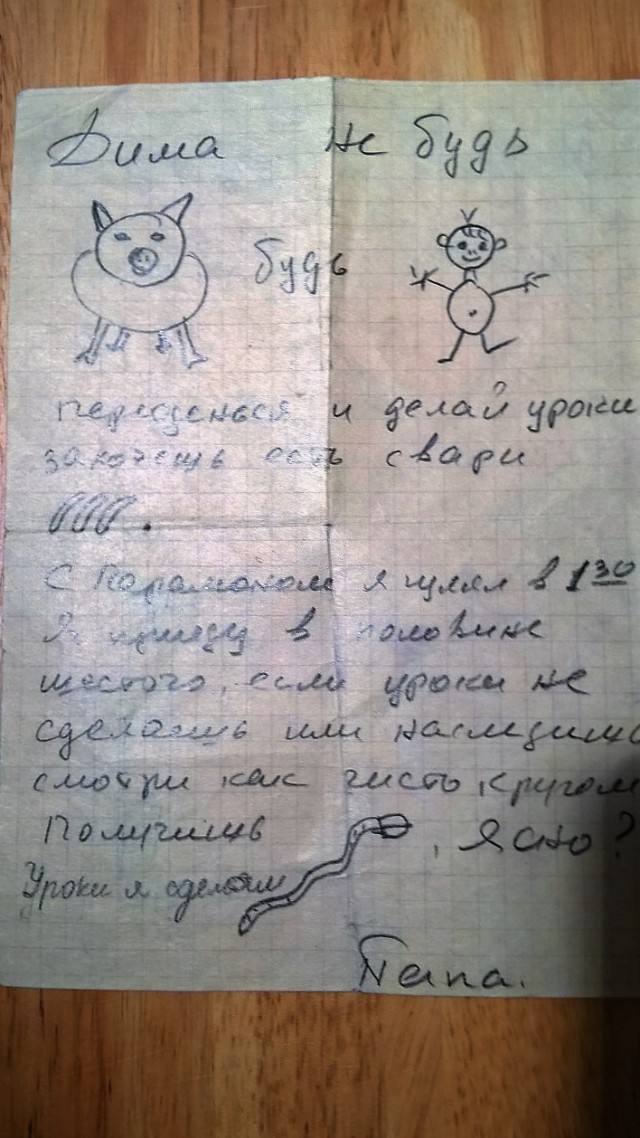 Дима не будь
будь
переоденься и делай уроки
захочешь есть свари
С Парамоном я гулял в 1 30
Я приеду в половине
шестого, если уроки не
сделаешь или наследишь
смотри как чисто кругом
Получишь , Ясно?
Уроки я сделал
Папа.